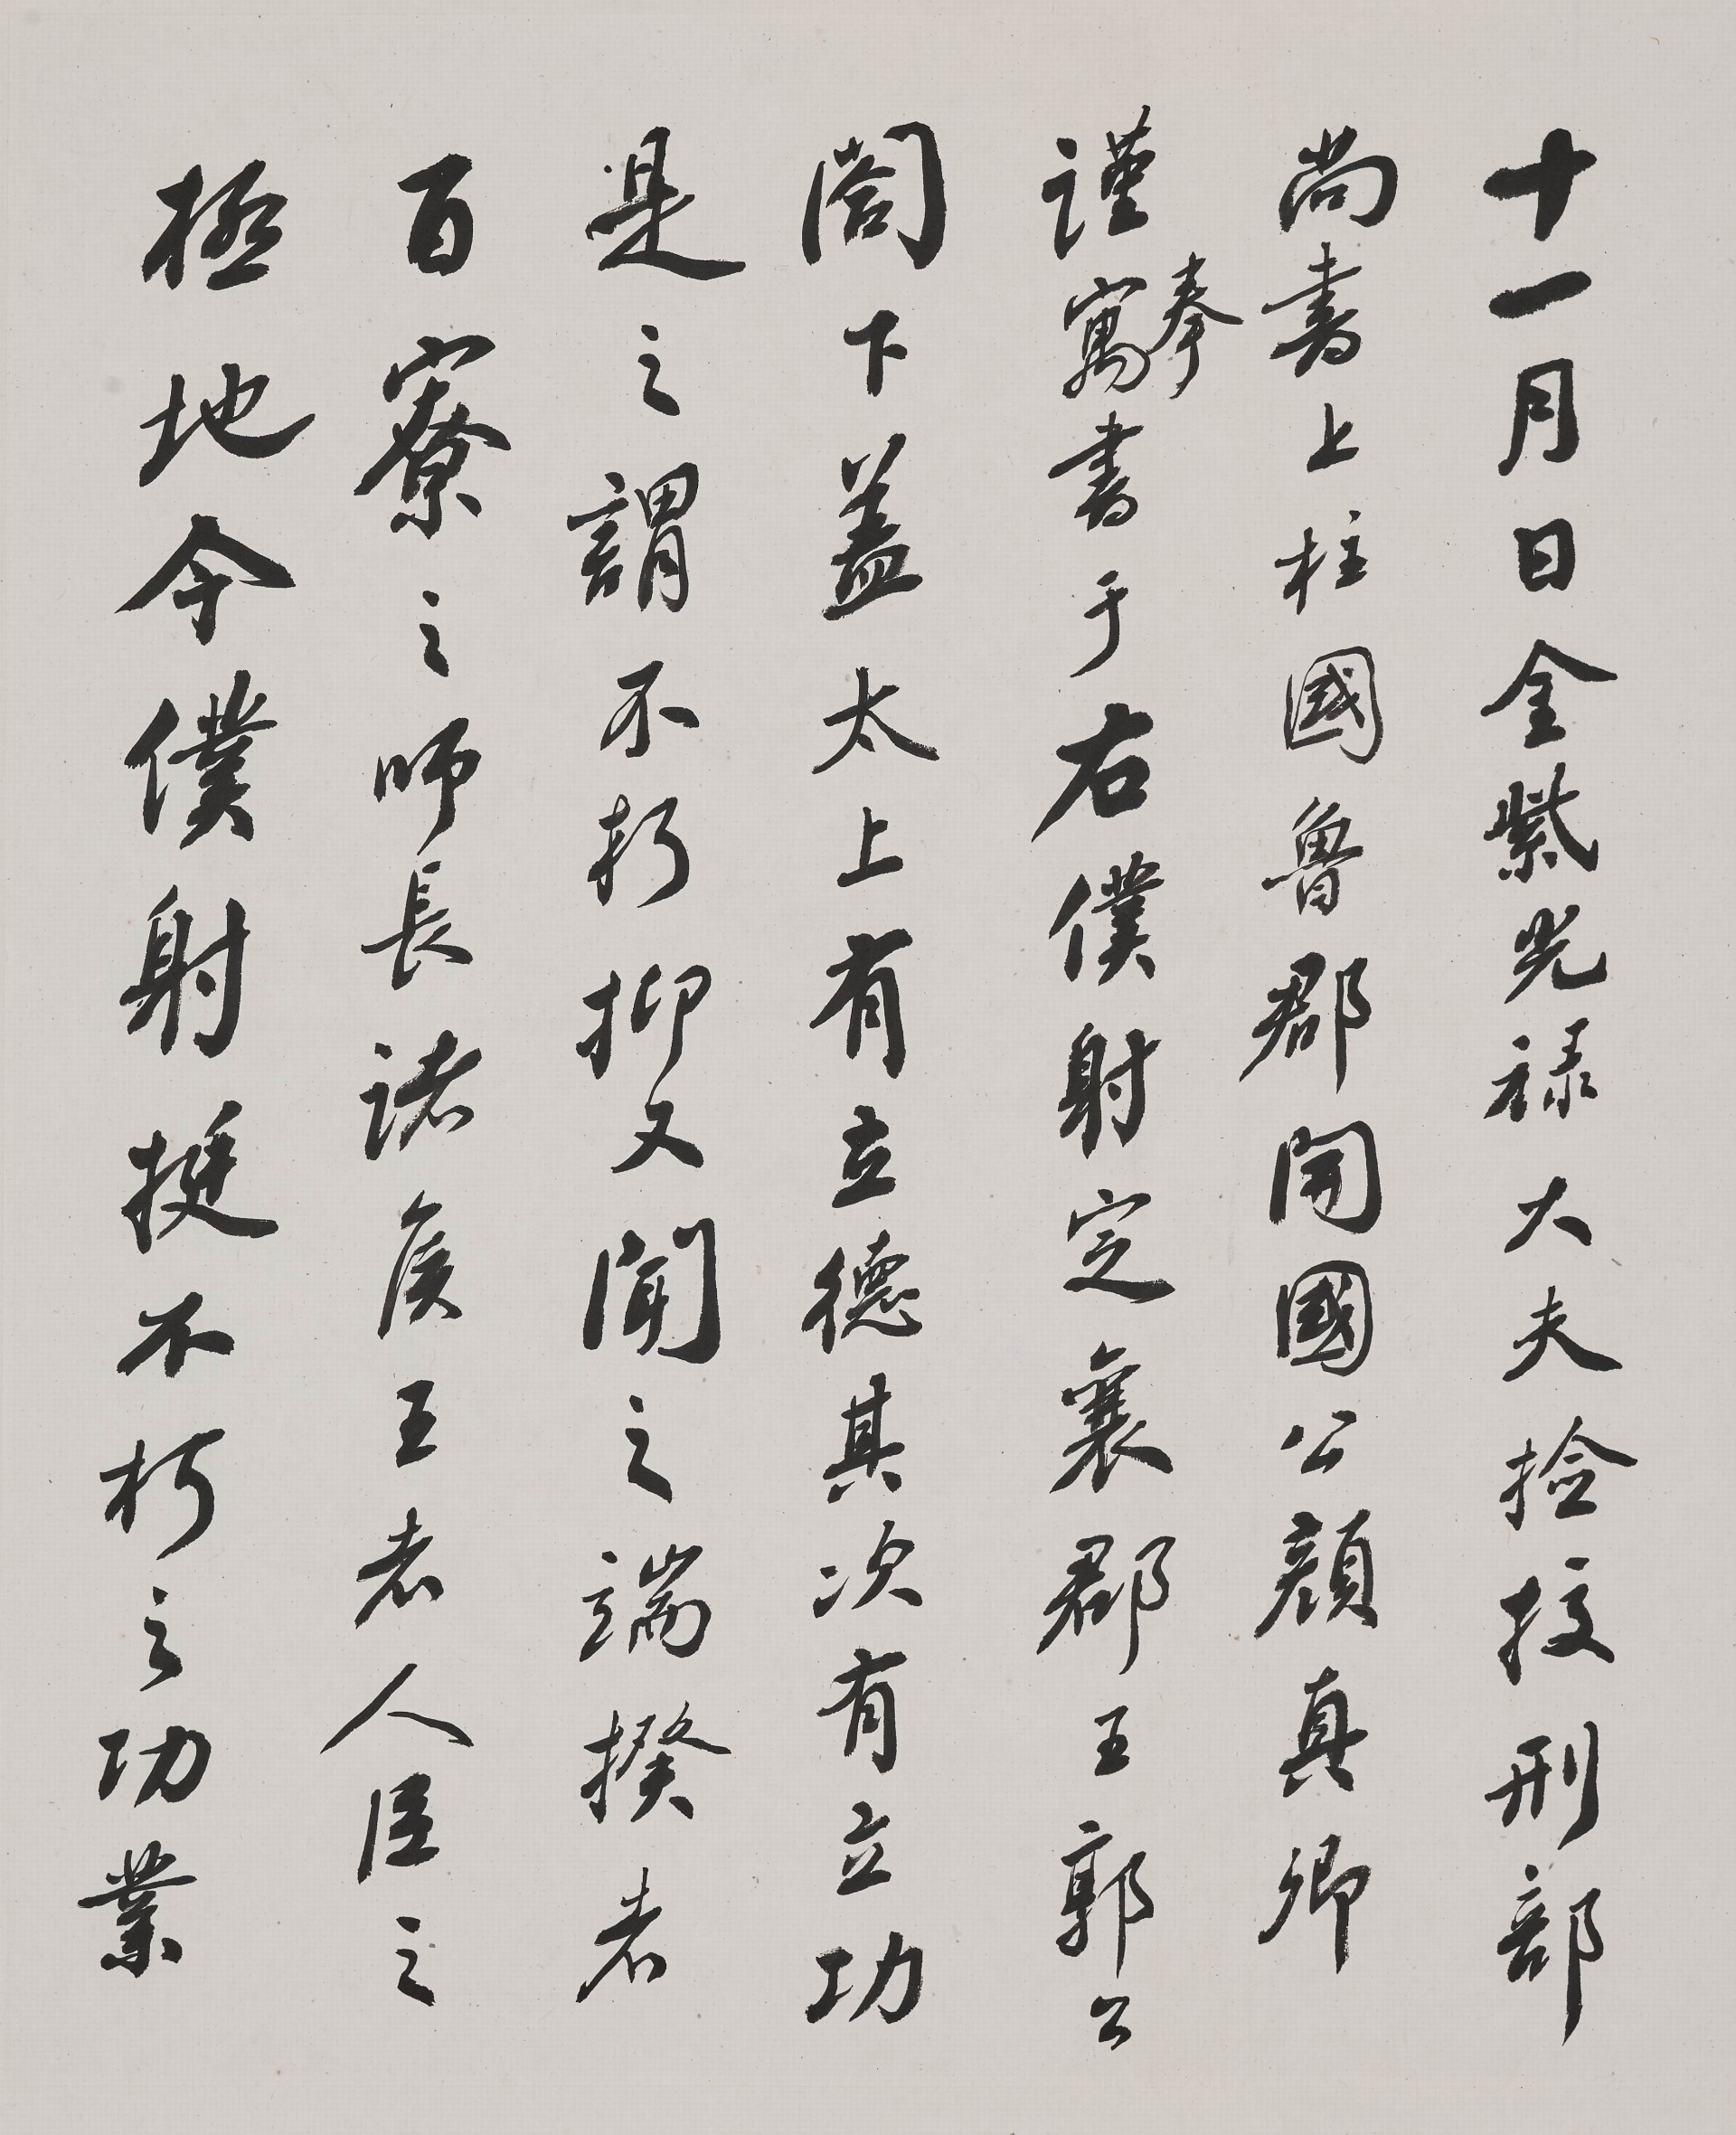 十一月日金紫光祿大夫撿挍刑部
尚書上柱國魯郡開國公顏真卿
謹奉寓書于右僕射定襄郡王郭公
閤下蓋太上有立德其次有立功
是之謂不朽抑又聞之端揆者
百寮之師長諸侯王者人臣之
極地今僕射挺不朽之功業